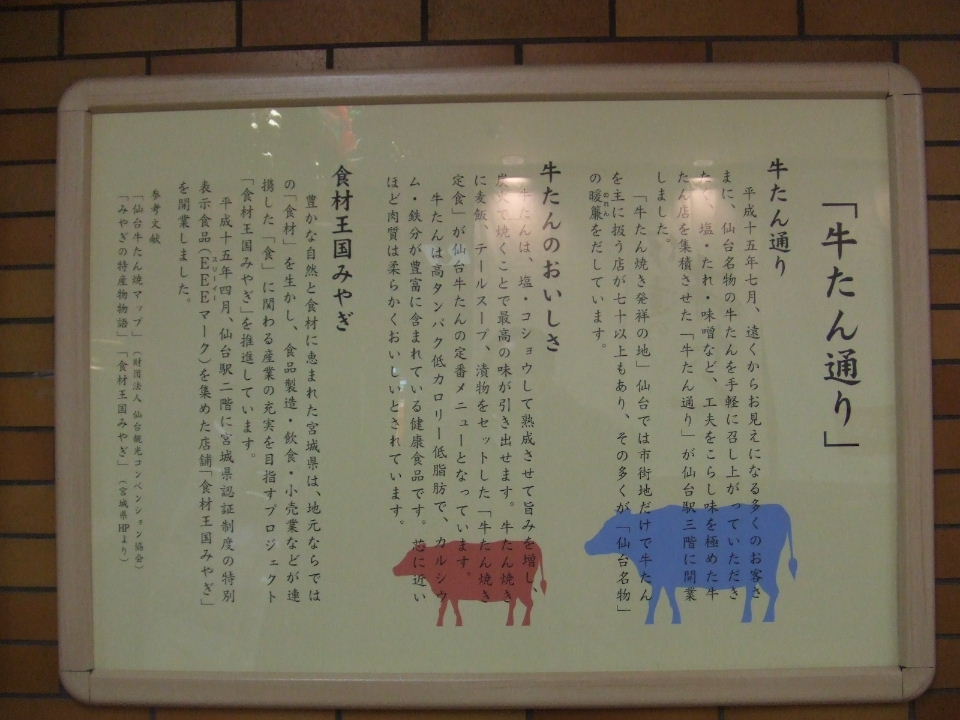 「牛たん通り」
牛たん通り
平成十五年七月、遠くからお見えになる多くのお客さ
まに、仙台名物の牛たんを手軽に召し上がっていただき
たく、塩・たれ・味噌など、工夫をこらし味を極めた牛
たん店を集積させた「牛たん通り」が仙台駅三階に開業
しました。
「牛たん焼き発祥の地」仙台では市街地だけで牛たん
を主に扱う店が七十以上もあり、その多くが「仙台名物」
の暖簾をだしています。
のれん
牛たんのおいしさ
牛たんは、塩・コショウして熟成させて旨みを増し、
炭火で焼くことで最高の味が引き出せます。牛たん焼き
に麦飯、テールスープ、漬物をセットした「牛たん焼き
定食」が仙台牛たんの定番メニューとなっています。
牛たんは高タンパク低カロリー低脂肪で、カルシウ
ム・鉄分が豊富に含まれている健康食品です。芯に近い
ほど肉質は柔らかくおいしいとされています。
食材王国みやぎ
豊かな自然と食材に恵まれた宮城県は、地元ならでは
の「食材」を生かし、食品製造・飲食・小売業などが連
携した「食」に関わる産業の充実を目指すプロジェクト
「食材王国みやぎ」を推進しています。
平成十五年四月、仙台駅二階に宮城県認証制度の特別
表示食品(EEEマーク)を集めた店舗「食材王国みやぎ」
スリーイー
を開業しました。
参考文献
「仙台牛たん焼マップ」(財団法人 仙台観光コンベンション協会)
「みやぎの特産物物語」「食材王国みやぎ」(宮城県HPより)